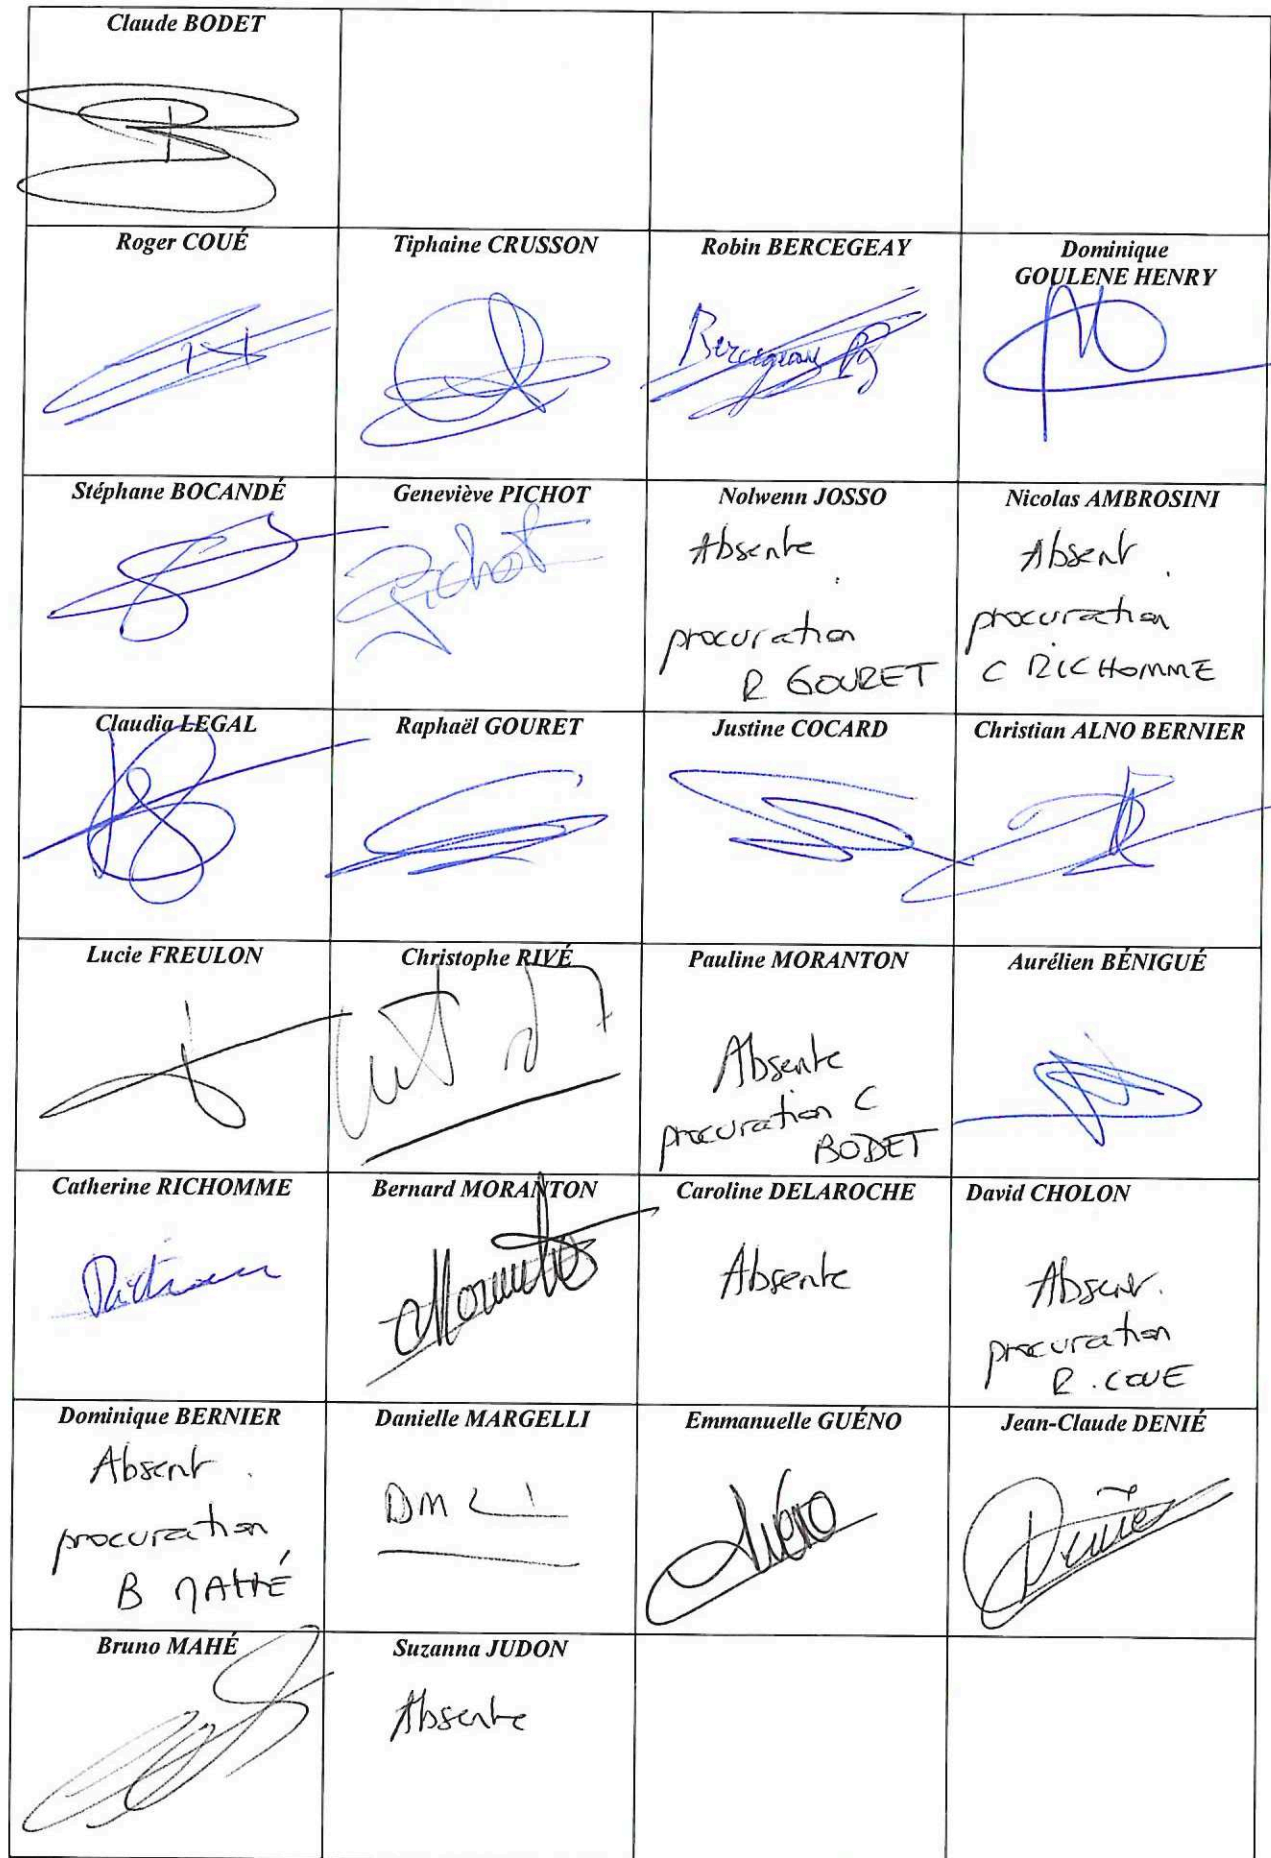 Claude BODET
Roger COUÉ
Tiphaine CRUSSON
Robin BERCEGEAY
Bercegeay
Dominique
GOULENE HENRY
Stéphane BOCANDÉ
Geneviève PICHOT
Pichot
Nolwenn JOSSO
Absente
procuration
R GOURET
Nicolas AMBROSINI
Absent
procuration
C RICHOMME
Claudia LEGAL
Raphaël GOURET
Justine COCARD
Christian ALNO BERNIER
Lucie FREULON
Christophe RIVÉ
Pauline MORANTON
Absente
procuration C
BODET
Aurélien BÉNIGUÉ
Catherine RICHOMME
Bernard MORANTON
Caroline DELAROCHE
Absente
David CHOLON
Absent.
procuration
R. COUE
Dominique BERNIER
Absent.
procuration
B MAHÉ
Danielle MARGELLI
Emmanuelle GUÉNO
Guéno
Jean-Claude DENIÉ
Denié
Bruno MAHÉ
Suzanna JUDON
Absente